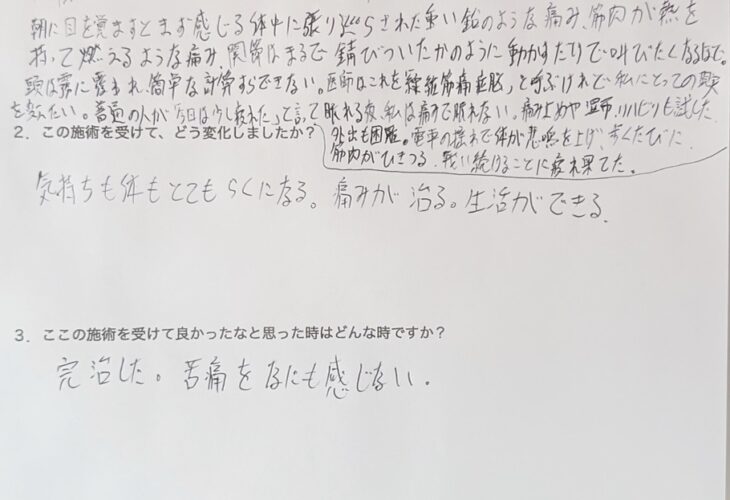 朝に目を覚ますとまず感じる体中に張り巡らされた重い鉛のような痛み、筋肉が熱を
持って燃えるような痛み、関節はまるで錆びついたかのように動かすたびで叫びたくなるほど。
頭は霧に覆われ、簡単な計算すらできない。医師はこれを「線維筋痛症」と呼ぶけれど、私にとっての
を奪いたい。普通の人が「今日は少し疲れた」と言って眠れる夜、私は痛みで眠れない。痛み止めや湿布、リハビリも試した
2．この施術を受けて、どう変化しましたか？
外出も困難。電車の揺れで体が悲鳴を上げ、歩くたびに
筋肉がひきつる。戦い続けることに疲れ果てた。
気持ちも体もとてもらくになる。痛みが治る。生活ができる。
3．ここの施術を受けて良かったなと思った時はどんな時ですか？
完治した。苦痛をなにも感じない。